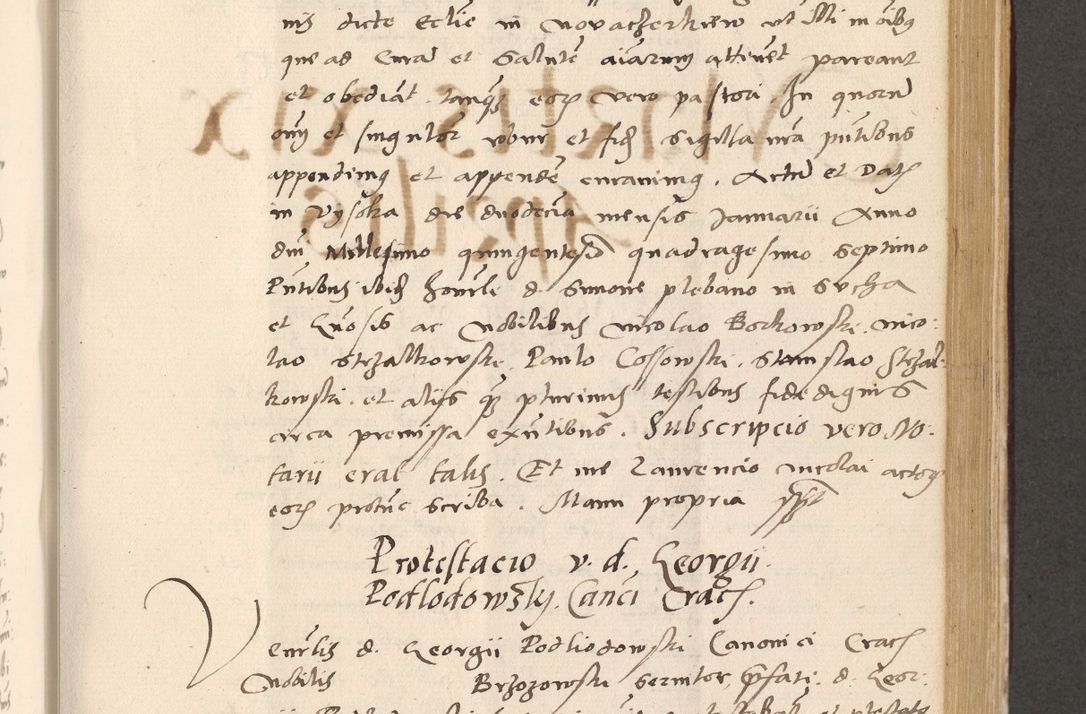 nis dicte Eccl̃ie in Novaczerkiew vt Illi in oĩbꝫ
que ad Curã et Salutẽ aĩarum attinẽt pareant
et obediãt tanqꝫ eorꝫ vero pastori. In quorũ
oĩm et singulorꝫ robur et fidẽ Sigilla nr̃a pñtibus
appendimꝫ et appendẽ curavimꝫ. Actũ et Datꝫ
in Vysoka die duodecĩa mensis Januarii Anno
dñi Millesimo quingentesiº quadragesimo septimo
Pñtibus ibid̃ honrli d. Simone plebano in Sucha
et Gñosis ac Nobilibus Nicolao Borkowski. Nico:
lao Strzalkowski. Paulo Cossowski. Stanislao Strzal:
kowski. et aliis qꝫ plurimis testibus fidedignis
circa premissa exñtibus. Subscripcio vero No:
tarii erat talis. Et me Laurencio Nicolai actorꝫ
eorꝫ protũc scriba. Manu propria sspt
Protestacio v. d. Georgii
Podlodowsky Canci Cracꝫ.
Venrlis d. Georgii Podliodowski Canonici Cracꝫ
Nobilis Brzozowski servitor p̃fati d. Geor: